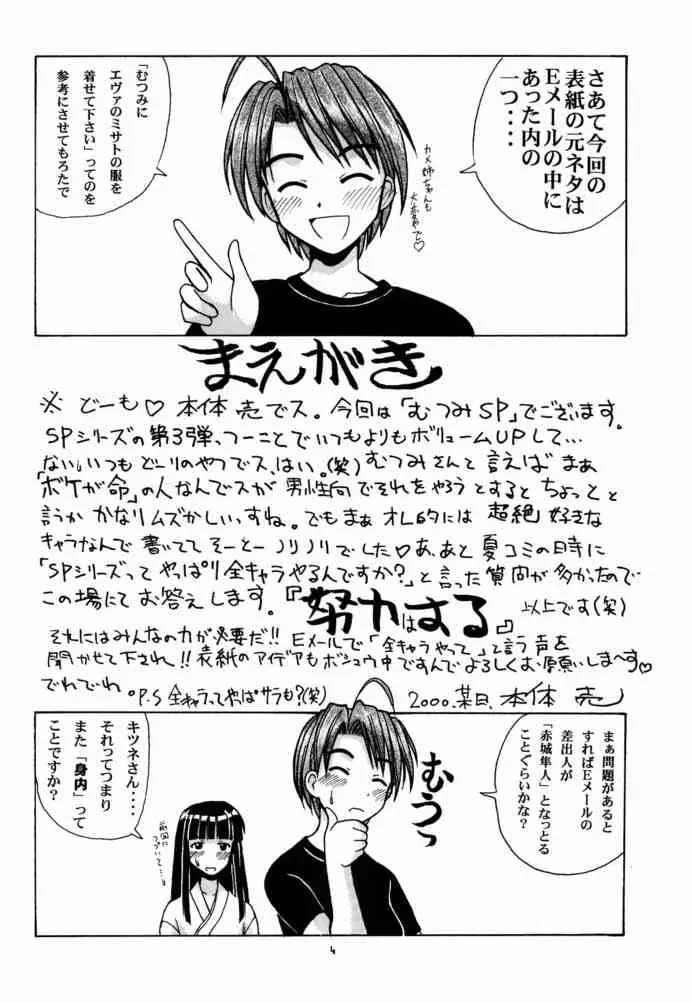 さあて今回の
表紙の元ネタは
Eメールの中に
あった内の
一つ・・・
カメ姉ちゃんも
大変やで♡
「むつみに
エヴァのミサトの服を
着せて下さい」ってのを
参考にさせてもろたで
まえがき
※ どーも♡ 本体 売でス。今回は「むつみSP」でございます。
SPシリーズの第3弾、つーことでいつもよりもボリュームUPして…
ない。いつもどーりのやつでス、はい。(笑) むつみさんと言えば まぁ
「ボケが命」の人なんでスが 男性向でそれをやろうとすると ちょっとと
言うか かなりムズかしいっすね。でもまぁ オレ的には 超絶 好きな
キャラなんで 書いてて そーとー ノリノリでした♡ あ、あと 夏コミの日時に
「SPシリーズって やっぱり全キャラやるんですか?」と言った質問が多かったので
この場にて お答えします。『努力はする』 以上です(笑)
それにはみんなの力が必要だ!! Eメールで「全キャラやって」と言う声を
聞かせて下され!! 表紙のアイデアもボシュウ中ですんでよろしくお願いしまーす♡
でわでわ。P.S 全キャラってやっぱサラも?(笑) 2000.某日、本体 売
まぁ問題があると
すればEメールの
差出人が
「赤城隼人」となっとる
ことぐらいかな?
むうっ
キツネさん・・・・
それってつまり
また「身内」って
ことですか?
前回に
つづいて…
4